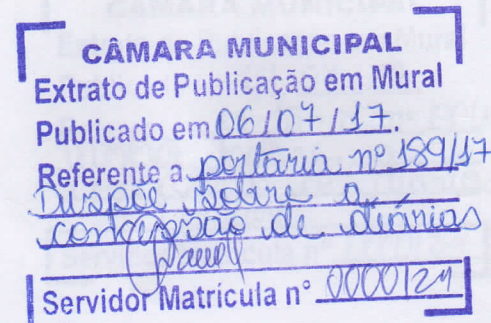 CÂMARA MUNICIPAL
Extrato de Publicação em Mural
Publicado em 06/07/17.
Referente a portaria nº 189/17
Dispõe sobre a
concessão de diárias
Servidor Matrícula n° 0000/21